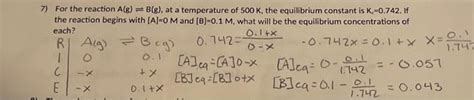 7) For the reaction A(g) ⇌ B(g), at a temperature of 500 K, the equilibrium constant is Kc=0.742. If
the reaction begins with [A]=0 M and [B]=0.1 M, what will be the equilibrium concentrations of
each?
R | A(g) ⇌ B(g) 0.742 = 0.1+x / 0-x -0.742x = 0.1+x x = 0.1 / 1.742
I 0 0.1
C -x +x [A]eq = [A]0-x [A]eq = 0 - 0.1 / 1.742 = -0.057
E -x 0.1+x [B]eq = [B]0+x [B]eq = 0.1 - 0.1 / 1.742 = 0.043